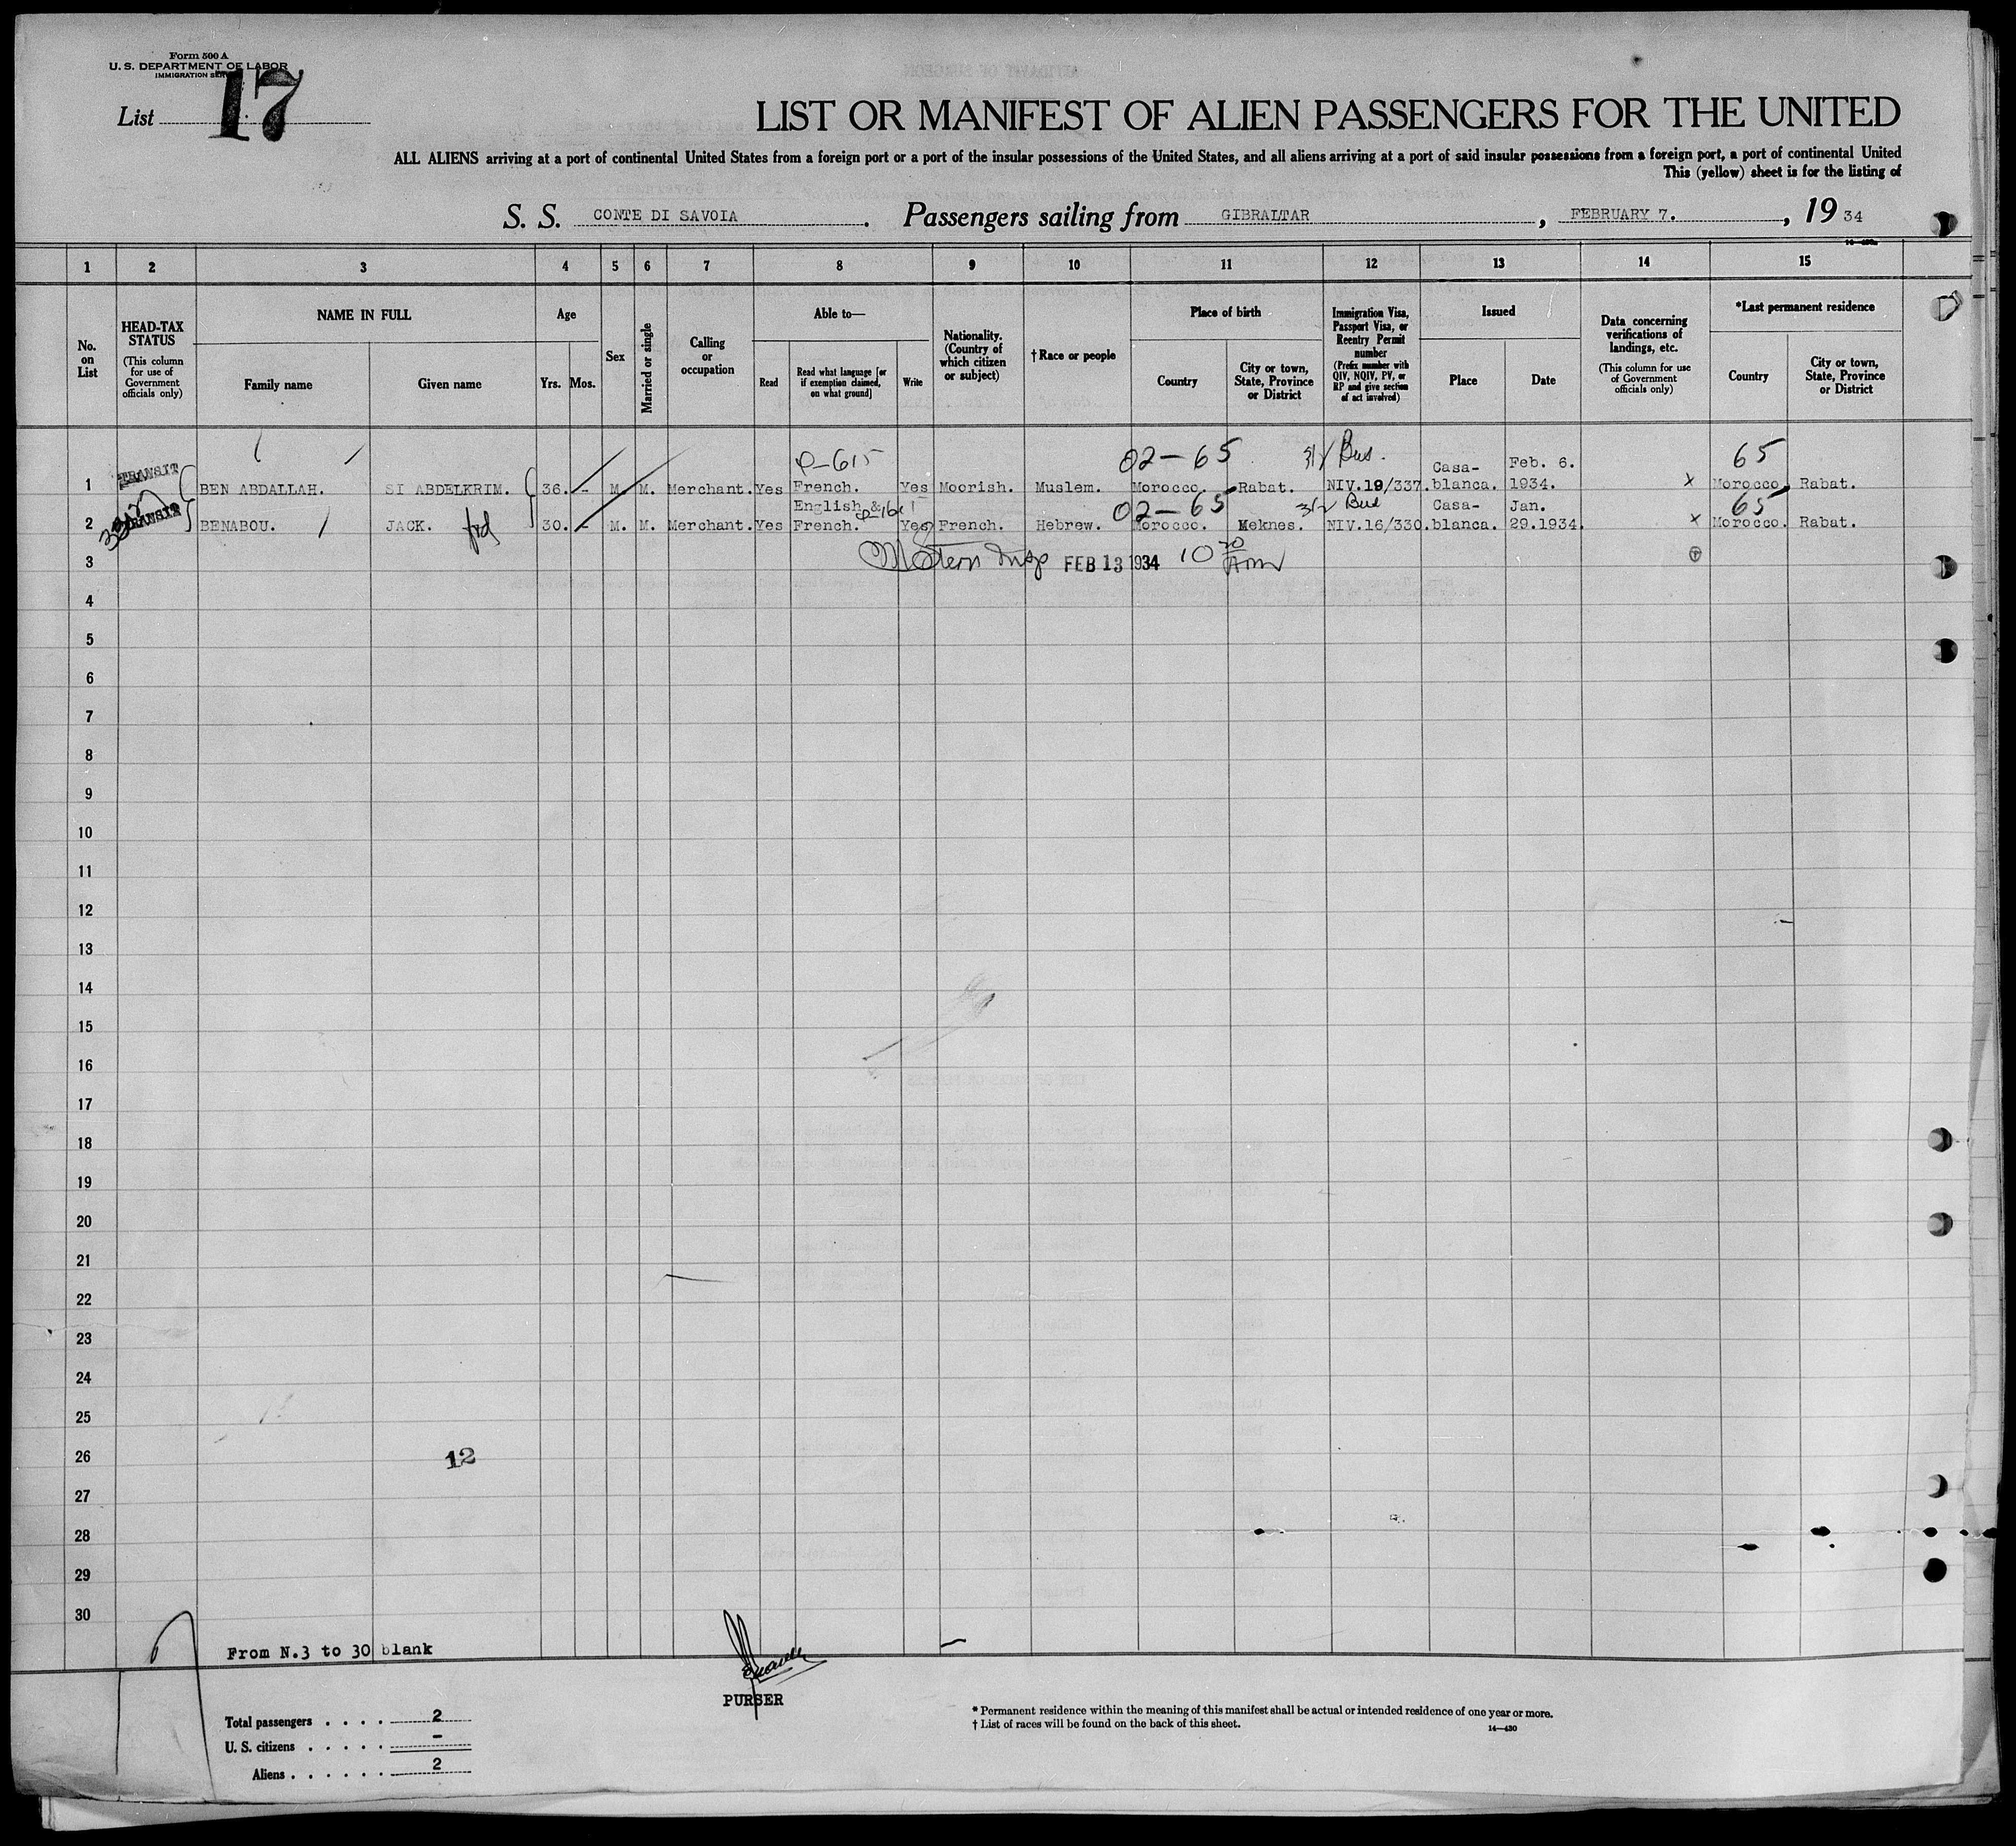 Form 500 A
U. S. DEPARTMENT OF LABOR
IMMIGRATION SERVICE
List 17
LIST OR MANIFEST OF ALIEN PASSENGERS FOR THE UNITED
ALL ALIENS arriving at a port of continental United States from a foreign port or a port of the insular possessions of the United States, and all aliens arriving at a port of said insular possessions from a foreign port, a port of continental United
This (yellow) sheet is for the listing of
S. S. CONTE DI SAVOIA. Passengers sailing from GIBRALTAR, FEBRUARY 7., 19 34
1 2 3 4 5 6 7 8 9 10 11 12 13 14 15
No. on List
HEAD-TAX STATUS (This column for use of Government officials only)
NAME IN FULL
Family name
Given name
Age
Yrs. Mos.
Sex
Married or single
Calling or occupation
Able to—
Read
Read what language [or if exemption claimed, on what ground]
Write
Nationality. (Country of which citizen or subject)
† Race or people
Place of birth
Country
City or town, State, Province or District
Immigration Visa, Passport Visa, or Reentry Permit number (Prefix number with QIV, NQIV, PV, or RP and give section of act involved)
Issued
Place
Date
Data concerning verifications of landings, etc. (This column for use of Government officials only)
*Last permanent residence
Country
City or town, State, Province or District
P-615 02-65 3/2 Bus. 65
1 TRANSIT BEN ABDALLAH. SI ABDELKRIM. 36. - M. M. Merchant. Yes French. Yes Moorish. Muslem. Morocco. Rabat. NIV.19/337. Casa-blanca. Feb. 6. 1934. x Morocco. Rabat.
02-65 3/2 Bus 65
2 TRANSIT BENABOU. JACK. 30. - M. M. Merchant. Yes English & French. Yes French. Hebrew. Morocco. Meknes. NIV.16/330. Casa-blanca. Jan. 29.1934. x Morocco. Rabat.
3 Stern Insp FEB 13 1934 10 30 Am
4
5
6
7
8
9
10
11
12
13
14
15
16
17
18
19
20
21
22
23
24
25
26 12
27
28
29
30
From N.3 to 30 blank
PURSER
Total passengers . . . . 2
U. S. citizens . . . . . -
Aliens . . . . . . 2
* Permanent residence within the meaning of this manifest shall be actual or intended residence of one year or more.
† List of races will be found on the back of this sheet.
14—430